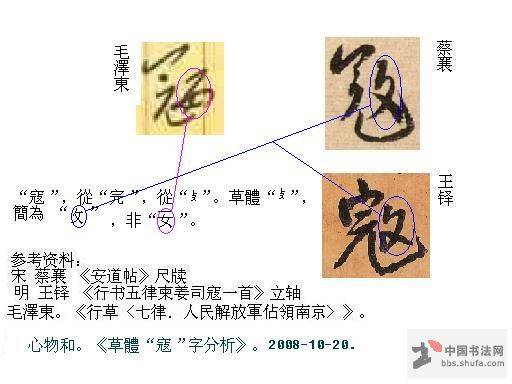 毛澤東
寇
寇
蔡襄
“寇 ”，從“完 ”，從“攴”。草體“攴”，
簡為 “攵” ，非“女 ”。
寇
王铎
参考资料：
宋 蔡襄 《安道帖》尺牍
明 王铎 《行书五律柬姜司寇一首》立轴
毛澤東。《行草〈七律．人民解放軍佔領南京〉》。
心物和。《草體“寇 ”字分析》。2008-10-20.
中国书法网
bbs.shufa.com